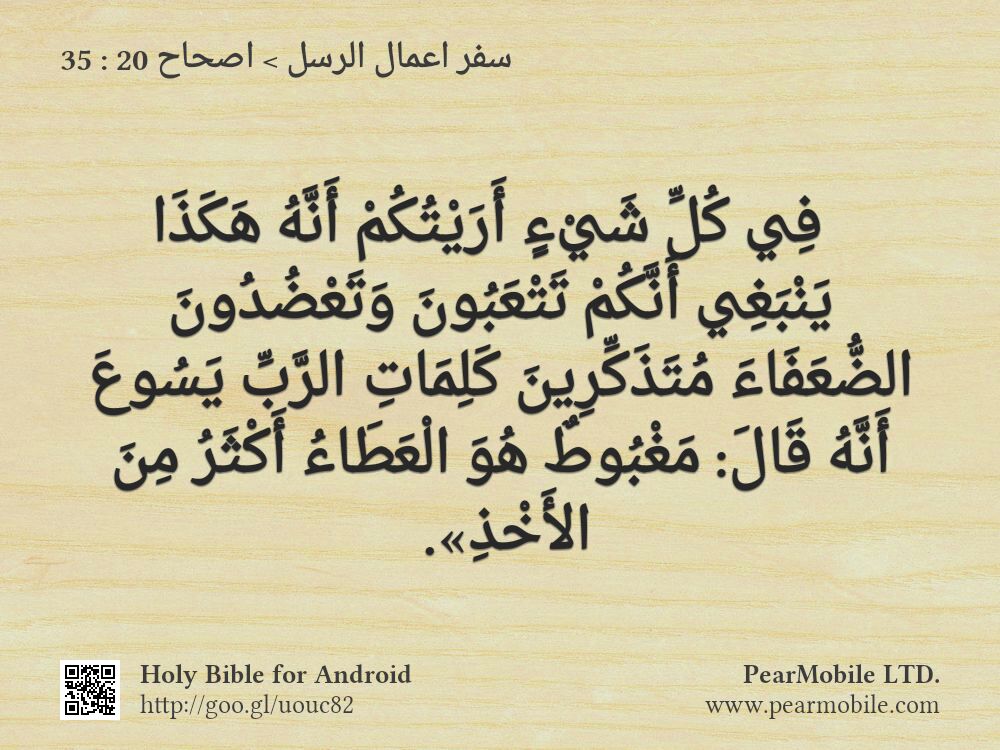 سفر اعمال الرسل > اصحاح 20 : 35
فِي كُلِّ شَيْءٍ أَرَيْتُكُمْ أَنَّهُ هَكَذَا
يَنْبَغِي أَنَّكُمْ تَتْعَبُونَ وَتَعْضُدُونَ
الضُّعَفَاءَ مُتَذَكِّرِينَ كَلِمَاتِ الرَّبِّ يَسُوعَ
أَنَّهُ قَالَ: مَغْبُوطٌ هُوَ الْعَطَاءُ أَكْثَرُ مِنَ
الأَخْذِ».
Holy Bible for Android
http://goo.gl/uouc82
PearMobile LTD.
www.pearmobile.com